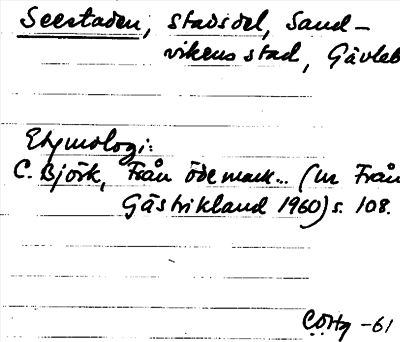 Seestaden, stadsdel, Sand-
vikens stad, Gävleb
Etymologi:
C. Björk, Från ödemark... (ur Från
Gästrikland 1960) s. 108.
-61